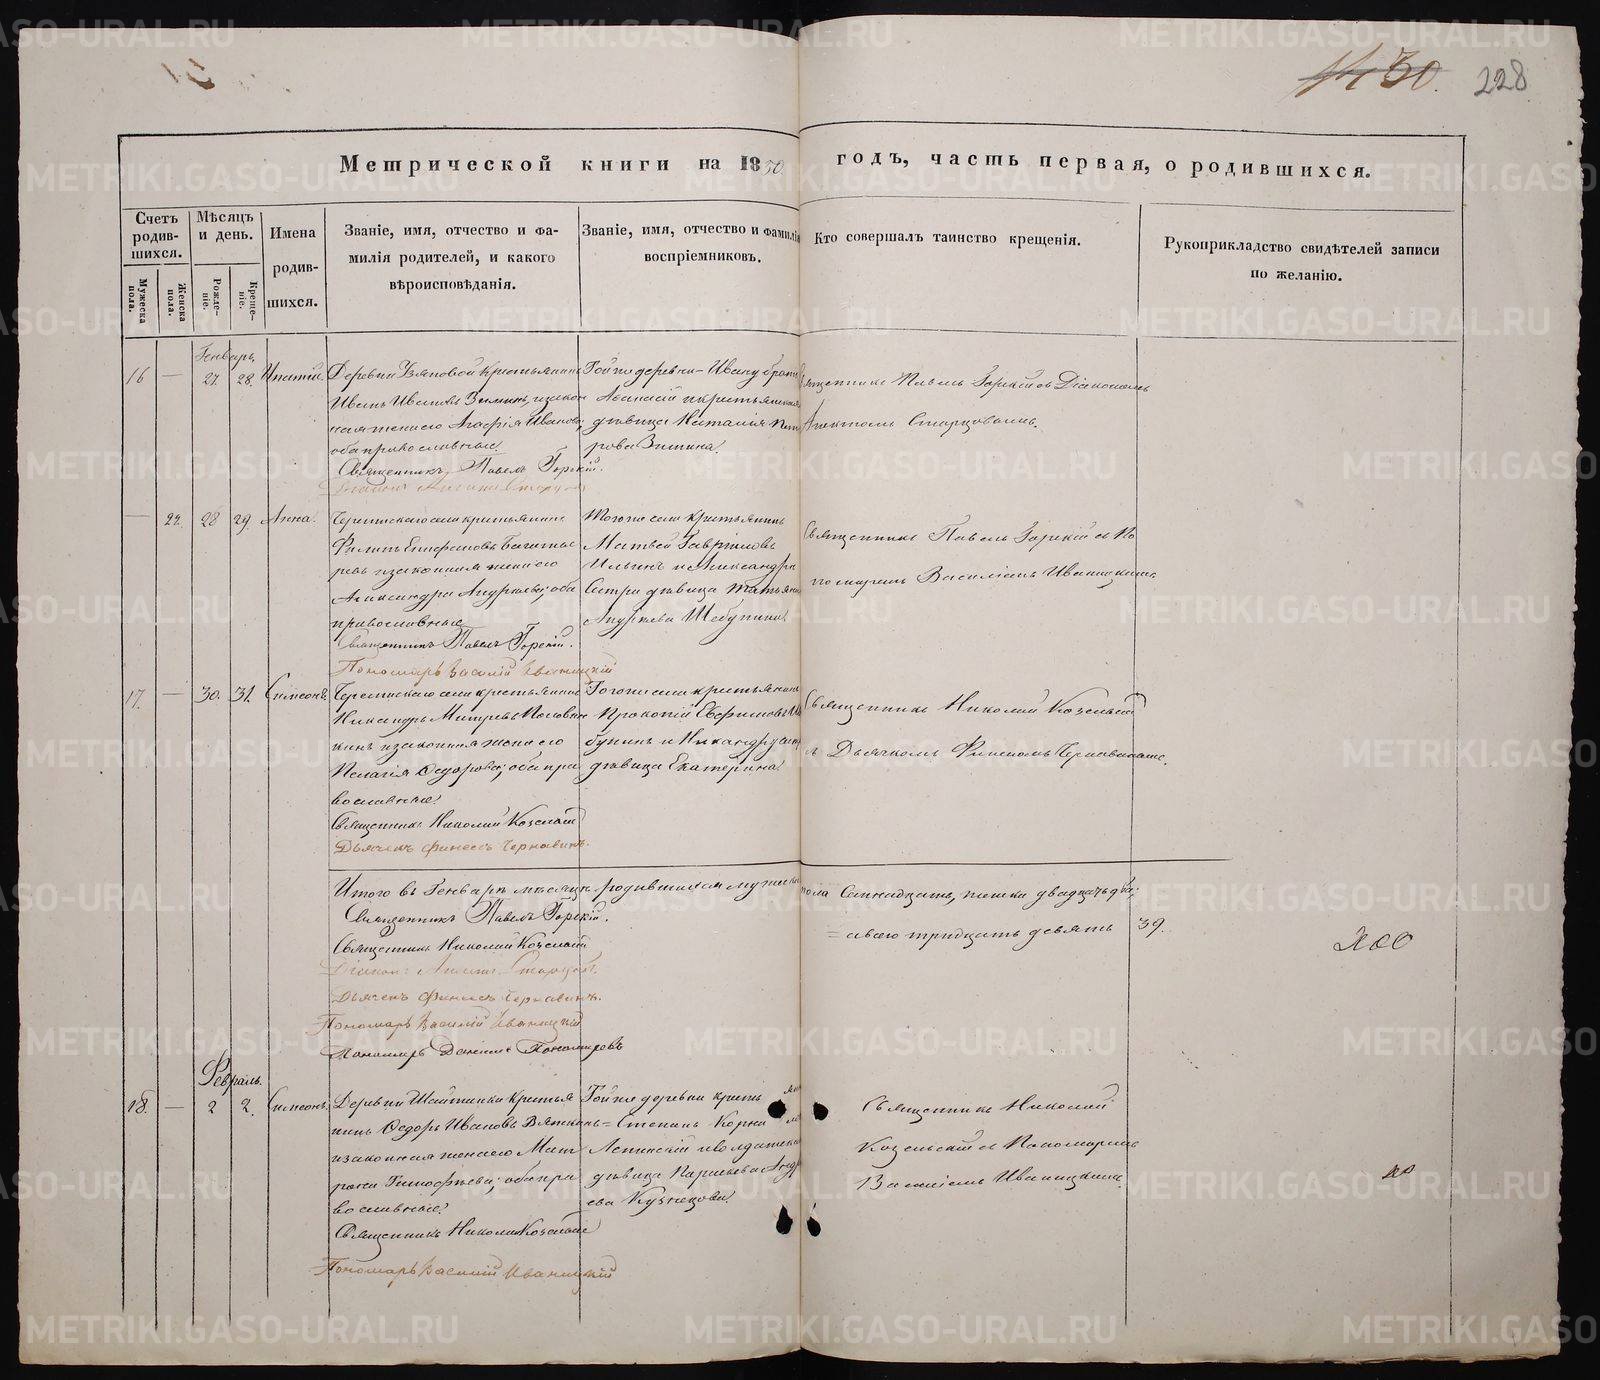 1430. 228
Метрической книги на 1850 годъ, часть первая, о родившихся.
Счетъ родив-шихся.
Мужеска пола.
Женска пола.
Мѣсяцъ и день.
Рожде-ніе.
Креще-ніе.
Имена родив-шихся.
Званіе, имя, отчество и фа-
милія родителей, и какого
вѣроисповѣданія.
Званіе, имя, отчество и фамилія
воспріемниковъ.
Кто совершалъ таинство крещенія.
Рукоприкладство свидѣтелей записи
по желанію.
Генварь
16 — 27. 28. Ипатій.
Деревни крестьянинъ
Иванъ Ивановъ Зиминъ, и закон
ная жена его Агафія Иванова,
оба православные.
Священникъ Павелъ Горскій.
Той же деревни Ивану братъ
Аѳанасій и крестьянская
дѣвица Наталия Пет
рова Зимина.
Священникъ Павелъ Горскій съ Діакономъ
Старцовымъ.
— 22. 28 29. Анна.
села крестьянинъ
Филипъ Епифановъ Богаты
ревъ и законная жена его
Александра Андреева; оба
православные.
Священникъ Павелъ Горскій.
Пономарь Василій Иваницкій
Того же села крестьянинъ
Матвей Гавриловъ
Ильинъ и Александры
Сестра дѣвица Татьяна
Андреева
Священникъ Павелъ Горскій съ По
номаремъ Василіемъ Иваницкимъ.
17. — 30. 31. Симеонъ.
села крестьянинъ
Никандръ
кинъ и законная жена его
Пелагія Ѳедорова; оба пра
вославные.
Священникъ Николай Козельскій
Дьячекъ Финеесъ Чернавинъ.
Того же села крестьянинъ
Прокопій Евфимовъ
бунинъ и Никандру сест
дѣвица Екатерина.
Священникъ Николай Козельскій
съ Дьячкомъ Финеесомъ Чернавинымъ.
Итого въ Генварѣ мѣсяцѣ родившихся мужеска пола Семнадцать, женска двадцать два;
= а всего тридцать девять 39.
Священникъ Павелъ Горскій.
Священникъ Николай Козельскій
Дьячекъ Финеесъ Чернавинъ.
Пономарь Василій Иваницкій
Пономарь Даниилъ Пономаревъ
Февраль.
18. — 2 2. Симеонъ.
Деревни Шайтанки крестья
нинъ Ѳедоръ Ивановъ Вяткинъ =
и законная жена его Мат
рона Тимофѣева; оба пра
вославные.
Священникъ Николай Козельскій
Пономарь Василій Иваницкій
Той же деревни крестьян
Степанъ
и солдатская
дѣвица Параскева Андр
еева Кузнецова.
Священникъ Николай
Козельскій съ Пономаремъ
Василіемъ Иваницкимъ
METRIKI.GASO-URAL.RU